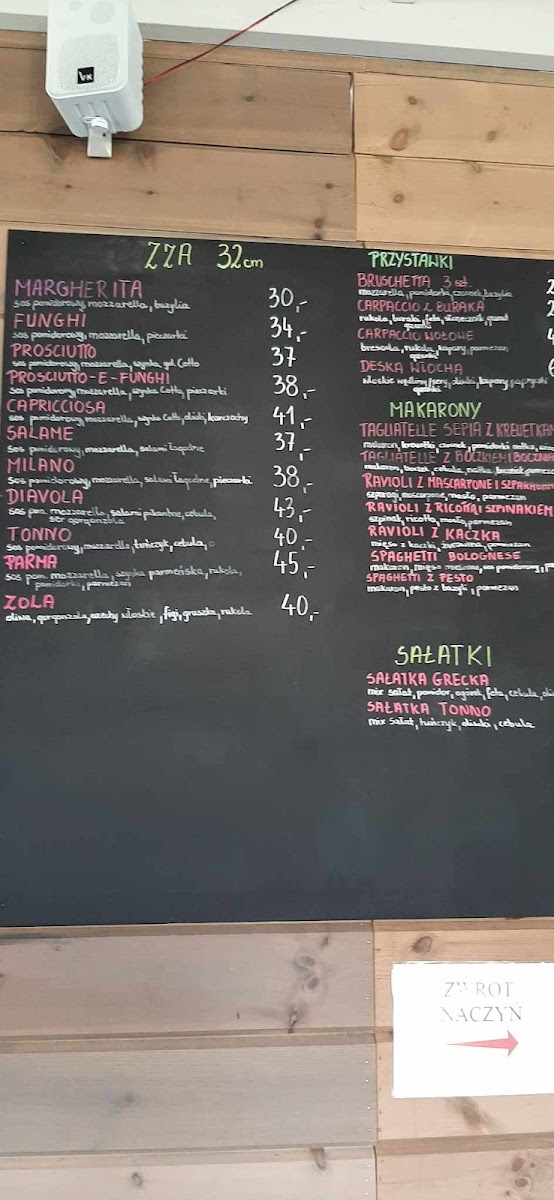 ZZA 32cm
MARGHERITA 30,-
sos pomidorowy, mozzarella, bazylia
FUNGHI 34,-
sos pomidorowy, mozzarella, pieczarki
PROSCIUTTO 37
sos pomidorowy, mozzarella, szynka got. Cotto
PROSCIUTTO-E-FUNGHI 38,-
sos pomidorowy, mozzarella, szynka Cotto, pieczarki
CAPRICCIOSA 41,-
sos pomidorowy, mozzarella, szynka Cotto, oliwki, karczochy
SALAME 37,-
sos pomidorowy, mozzarella, salami łagodne
MILANO 38,-
sos pomidorowy, mozzarella, salami łagodne, pieczarki
DIAVOLA 43,-
sos pom. mozzarella, salami pikantne, cebula,
ser gorgonzola
TONNO 40,-
sos pomidorowy, mozzarella, tuńczyk, cebula,
PARMA 45,-
sos pom. mozzarella, szynka parmeńska, rukola,
pomidorki, parmezan
ZOLA 40,-
oliwa, gorgonzola, orzechy włoskie, figi, gruszka, rukola
PRZYSTAWKI
BRUSCHETTA 3 szt. 2
mozzarella, pomidorki, czosnek, bazylia
CARPACCIO Z BURAKA 2
rukola, buraki, feta, słonecznik,
grzanki
CARPACCIO WOŁOWE 4
bresaola, rukola, kapary, parmezan
grzanki
DESKA WŁOCHA 6
włoskie wędliny/sery, oliwki, kapary, papryczki
grzanki
MAKARONY
TAGLIATELLE SEPIA Z KREWETKAM
makaron, krewetki, czosnek, pomidorki
TAGLIATELLE Z BOCZKIEM I BOCZNIA
makaron, boczek, cebula, natka,
RAVIOLI Z MASCARPONE I SZPARAG
szparagi, mascarpone, masło, parmezan
RAVIOLI Z RICOTTĄ I SZPINAKIEM
szpinak, ricotta, masło, parmezan
RAVIOLI Z KACZKĄ
mięso z kaczki, żurawina, parmezan
SPAGHETTI BOLOGNESE
makaron, mięso mielone, sos pomidorowy, p
SPAGHETTI Z PESTO
makaron, pesto z bazylii, parmezan
SAŁATKI
SAŁATKA GRECKA
mix sałat, pomidor, ogórek, feta, cebula, oli
SAŁATKA TONNO
mix sałat, tuńczyk, oliwki, cebula
ZWROT
NACZYŃ